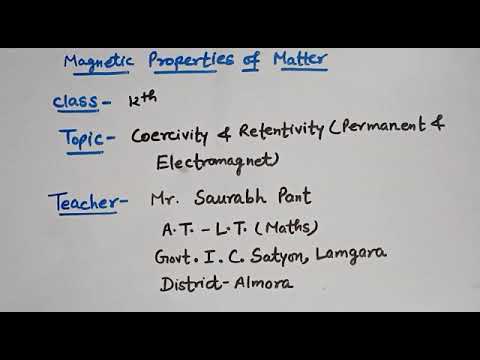 Magnetic Properties of Matter
Class- 12th
Topic- Coercivity & Retentivity (Permanent &
Electromagnet)
Teacher- Mr. Saurabh Pant
A.T. - L.T. (Maths)
Govt. I. C. Satyon, Lamgara
District- Almora